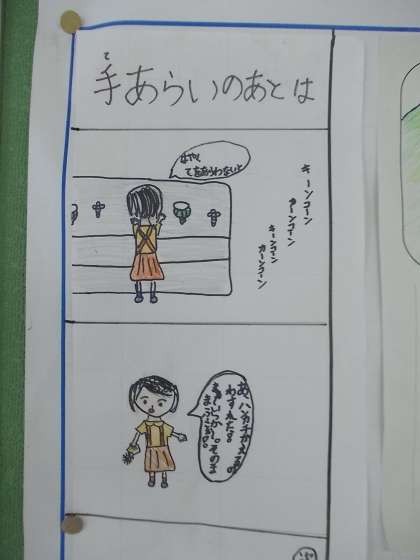 て
手あらいのあとは
はやく
てをあらわないと
キーンコーン
カーンコーン
キーンコーン
カーンコーン
あ、ハンカチかえるの
わすれてた。